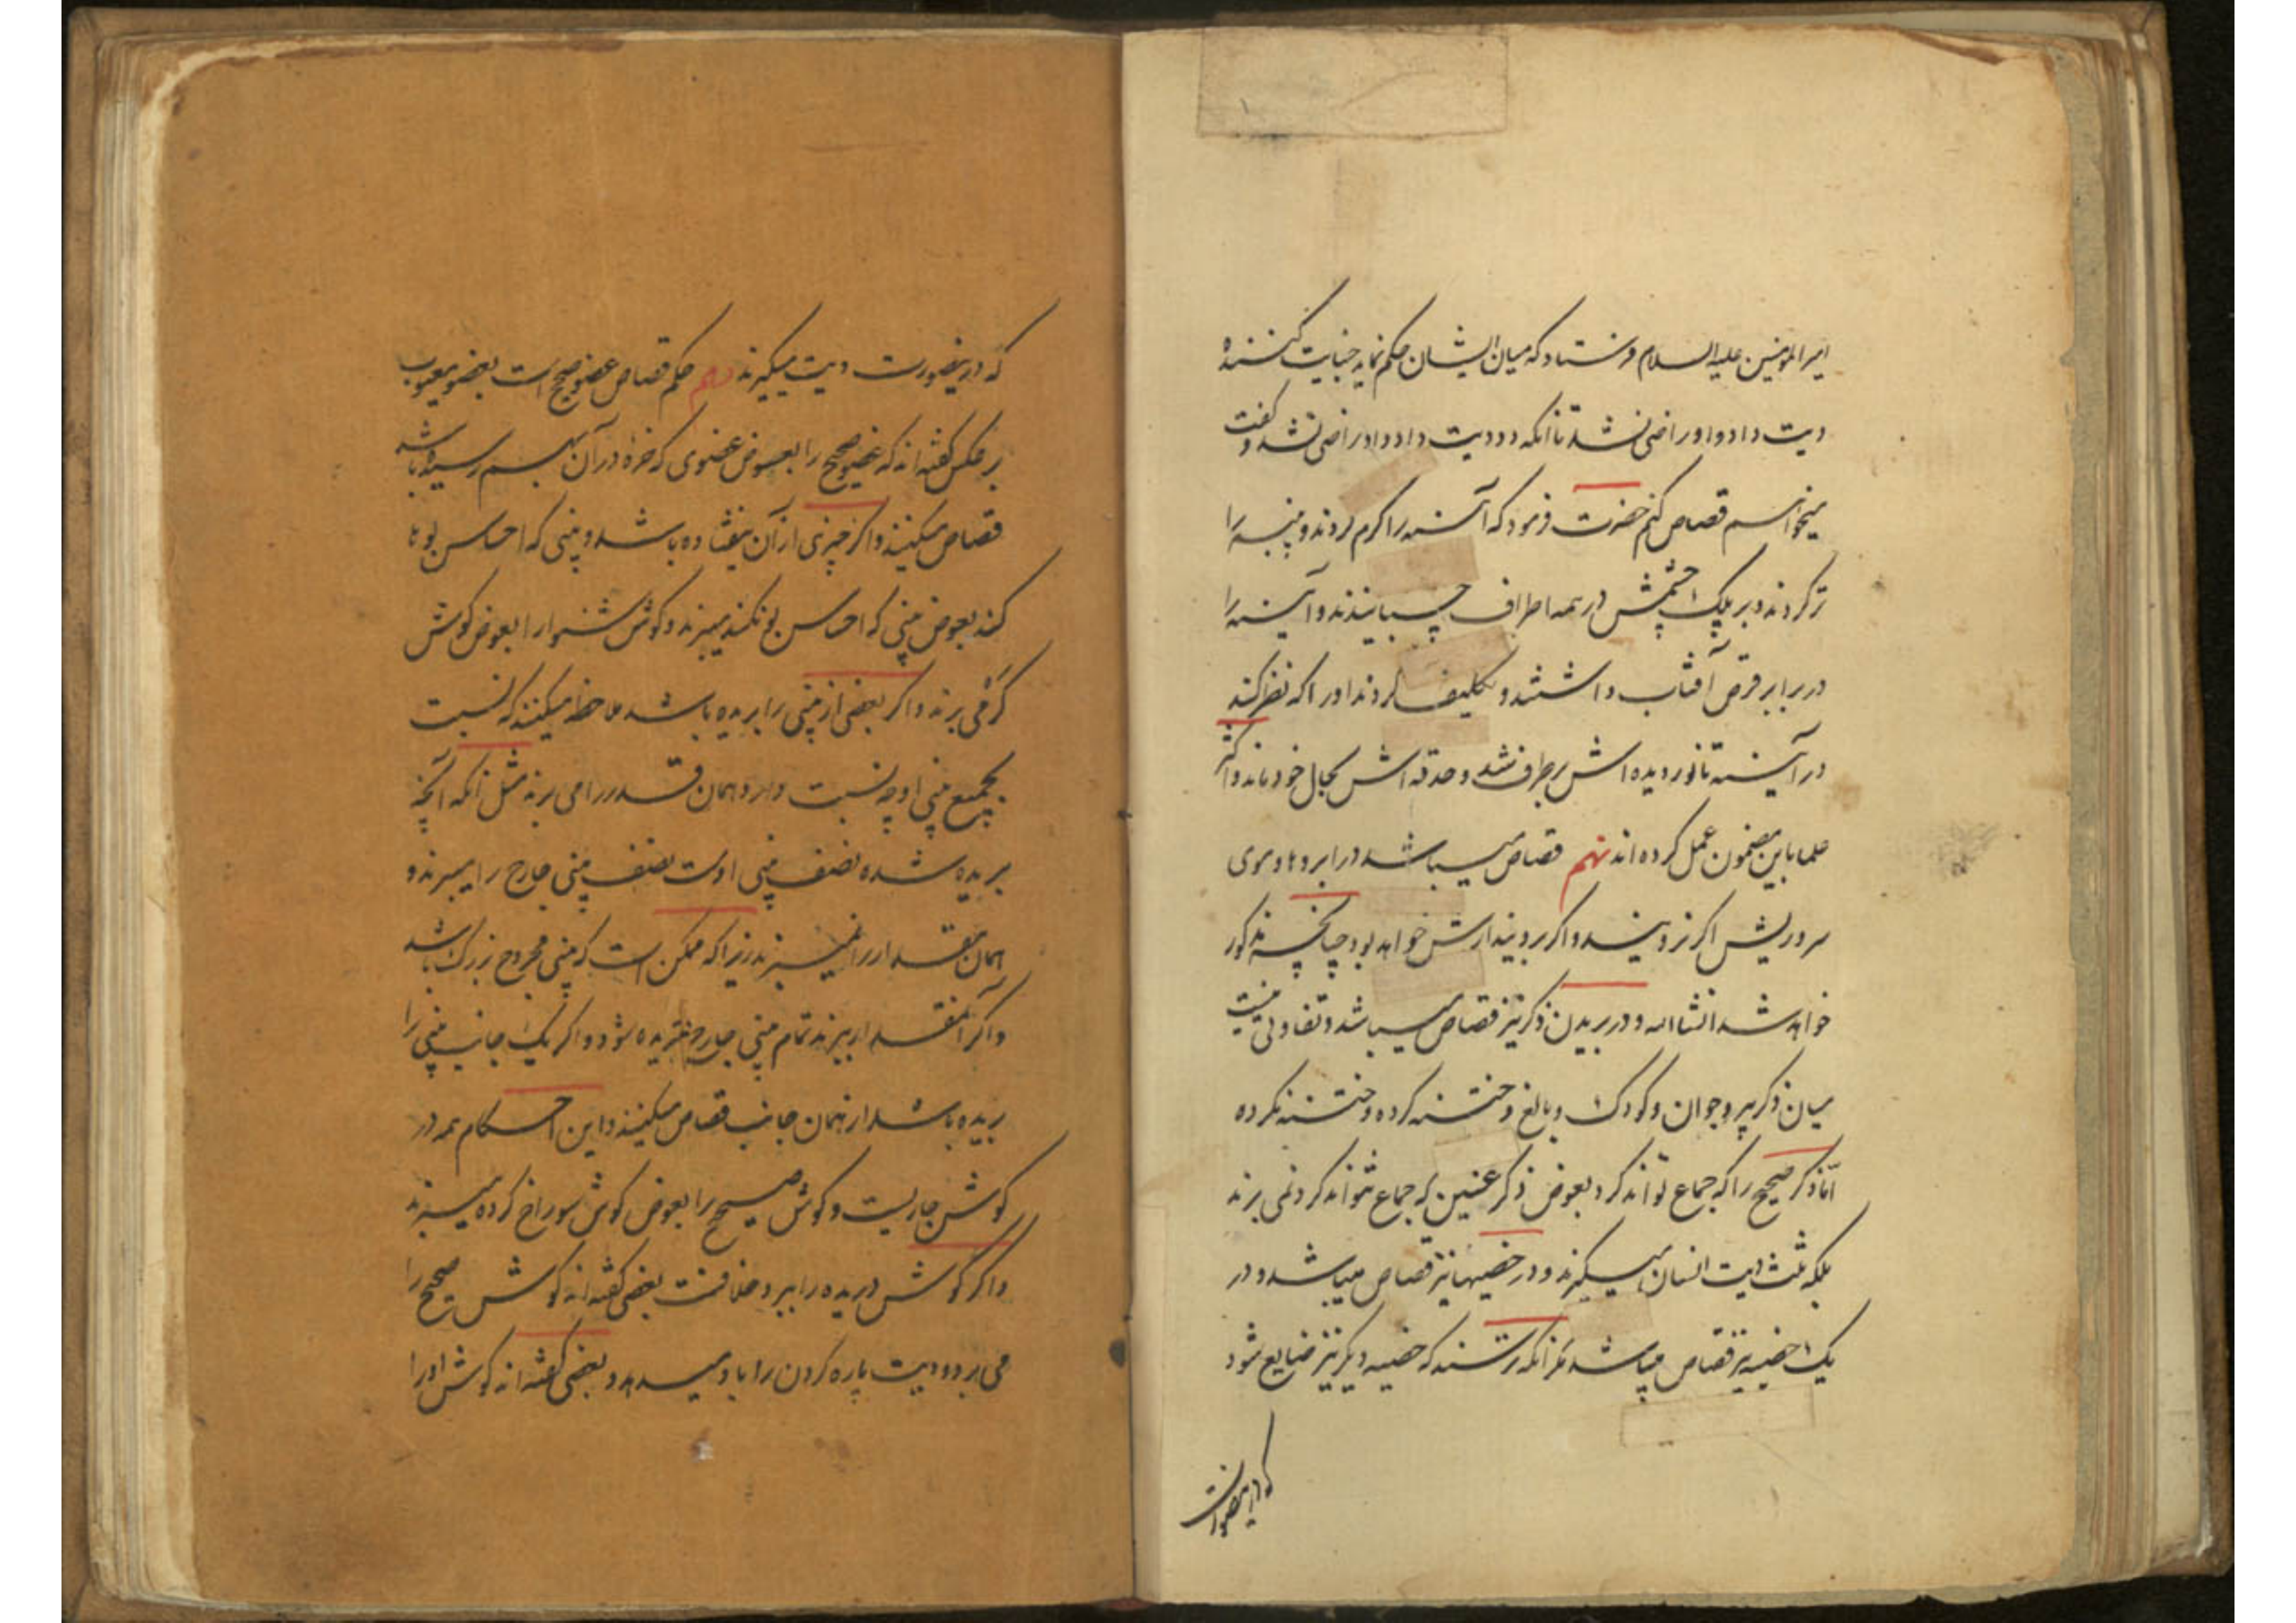 امیرالمومنین علیه السلام فرستاد که میان ایشان حکم نماید جنایت کننده
دیت داد و او راضی نشد تا آنکه دو دیت داد و او راضی نشد و گفت
میخواهم قصاص کنم حضرت فرمود که آینه را گرم کردند و پنبه را
تر کردند و بر پلک چشمش در همه اطراف چسبانیدند و آینه را
در برابر قرص آفتاب داشتند و تکلیف کردند او را که نظر کند
در آینه تا نور دیده اش برطرف شد و حدقه اش بحال خود ماند و اکثر
علما باین مضمون عمل کرده اند نهم قصاص میباشد در ابروها و موی
سر و ریش اگر نرویند و اگر برویند ارش خواهد بود چنانچه مذکور
خواهد شد انشاالله و در بریدن ذکر نیز قصاص میباشد و تفاوتی نیست
میان ذکر پیر و جوان و کودک و بالغ و ختنه کرده و ختنه نکرده
امّا ذکر صحیح را که جماع تواند کرد بعوض ذکر عنین که جماع نتواند کرد نمی برند
بلکه ثلث دیت انسان میگیرند و در خصیهها نیز قصاص میباشد و در
یک خصیه نیز قصاص میباشد مگر آنکه ترسند که خصیه دیگر نیز ضایع شود
که درینصورت
که درینصورت دیت میگیرند دهم حکم قصاص عضو صحیح است بعضو معیوب
بر عکس گفته اند که عضو صحیح را بعوض عضوی که خوره در آن بهم رسیده باشد
قصاص میکنند و اگر چیزی از آن نیفتاده باشد و بینی که احساس بوها
کند بعوض بینی که احساس بو نکند میبرند و گوش شنوا را بعوض گوش
کر می برند و اگر بعضی از بینی را بریده باشد ملاحظه میکنند که نسبت
بجمیع بینی او چه نسبت دارد همان قدر را می برند مثل آنکه آنچه
بریده شده نصف بینی اوست نصف بینی جارح را میبرند و
همان مقدار را نمیبرند زیرا که ممکن است که بینی مجروح بزرگ باشد
و اگر آنمقدار ببرند تمام بینی جارح بریده شود و اگر یک جانب بینی را
بریده باشد از همان جانب قصاص میکنند و این احکام همه در
گوش جاریست و گوش صحیح را بعوض گوش سوراخ کرده میبرند
و اگر گوش دریده را ببرد خلافست بعضی گفته اند گوش صحیح را
می برد و دیت پاره کردن را باو میدهد و بعضی گفته اند گوش او را